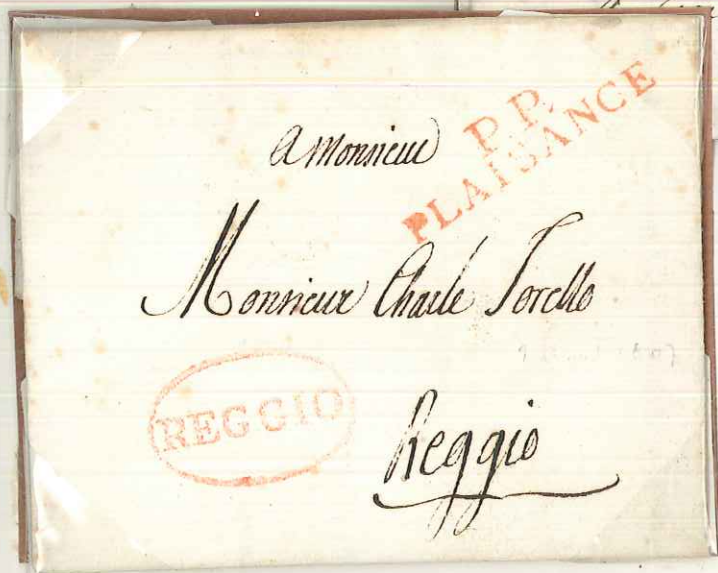 P.P.
PLAISANCE
A Monsieur
Monsieur Charle Torello
REGGIO
Reggio